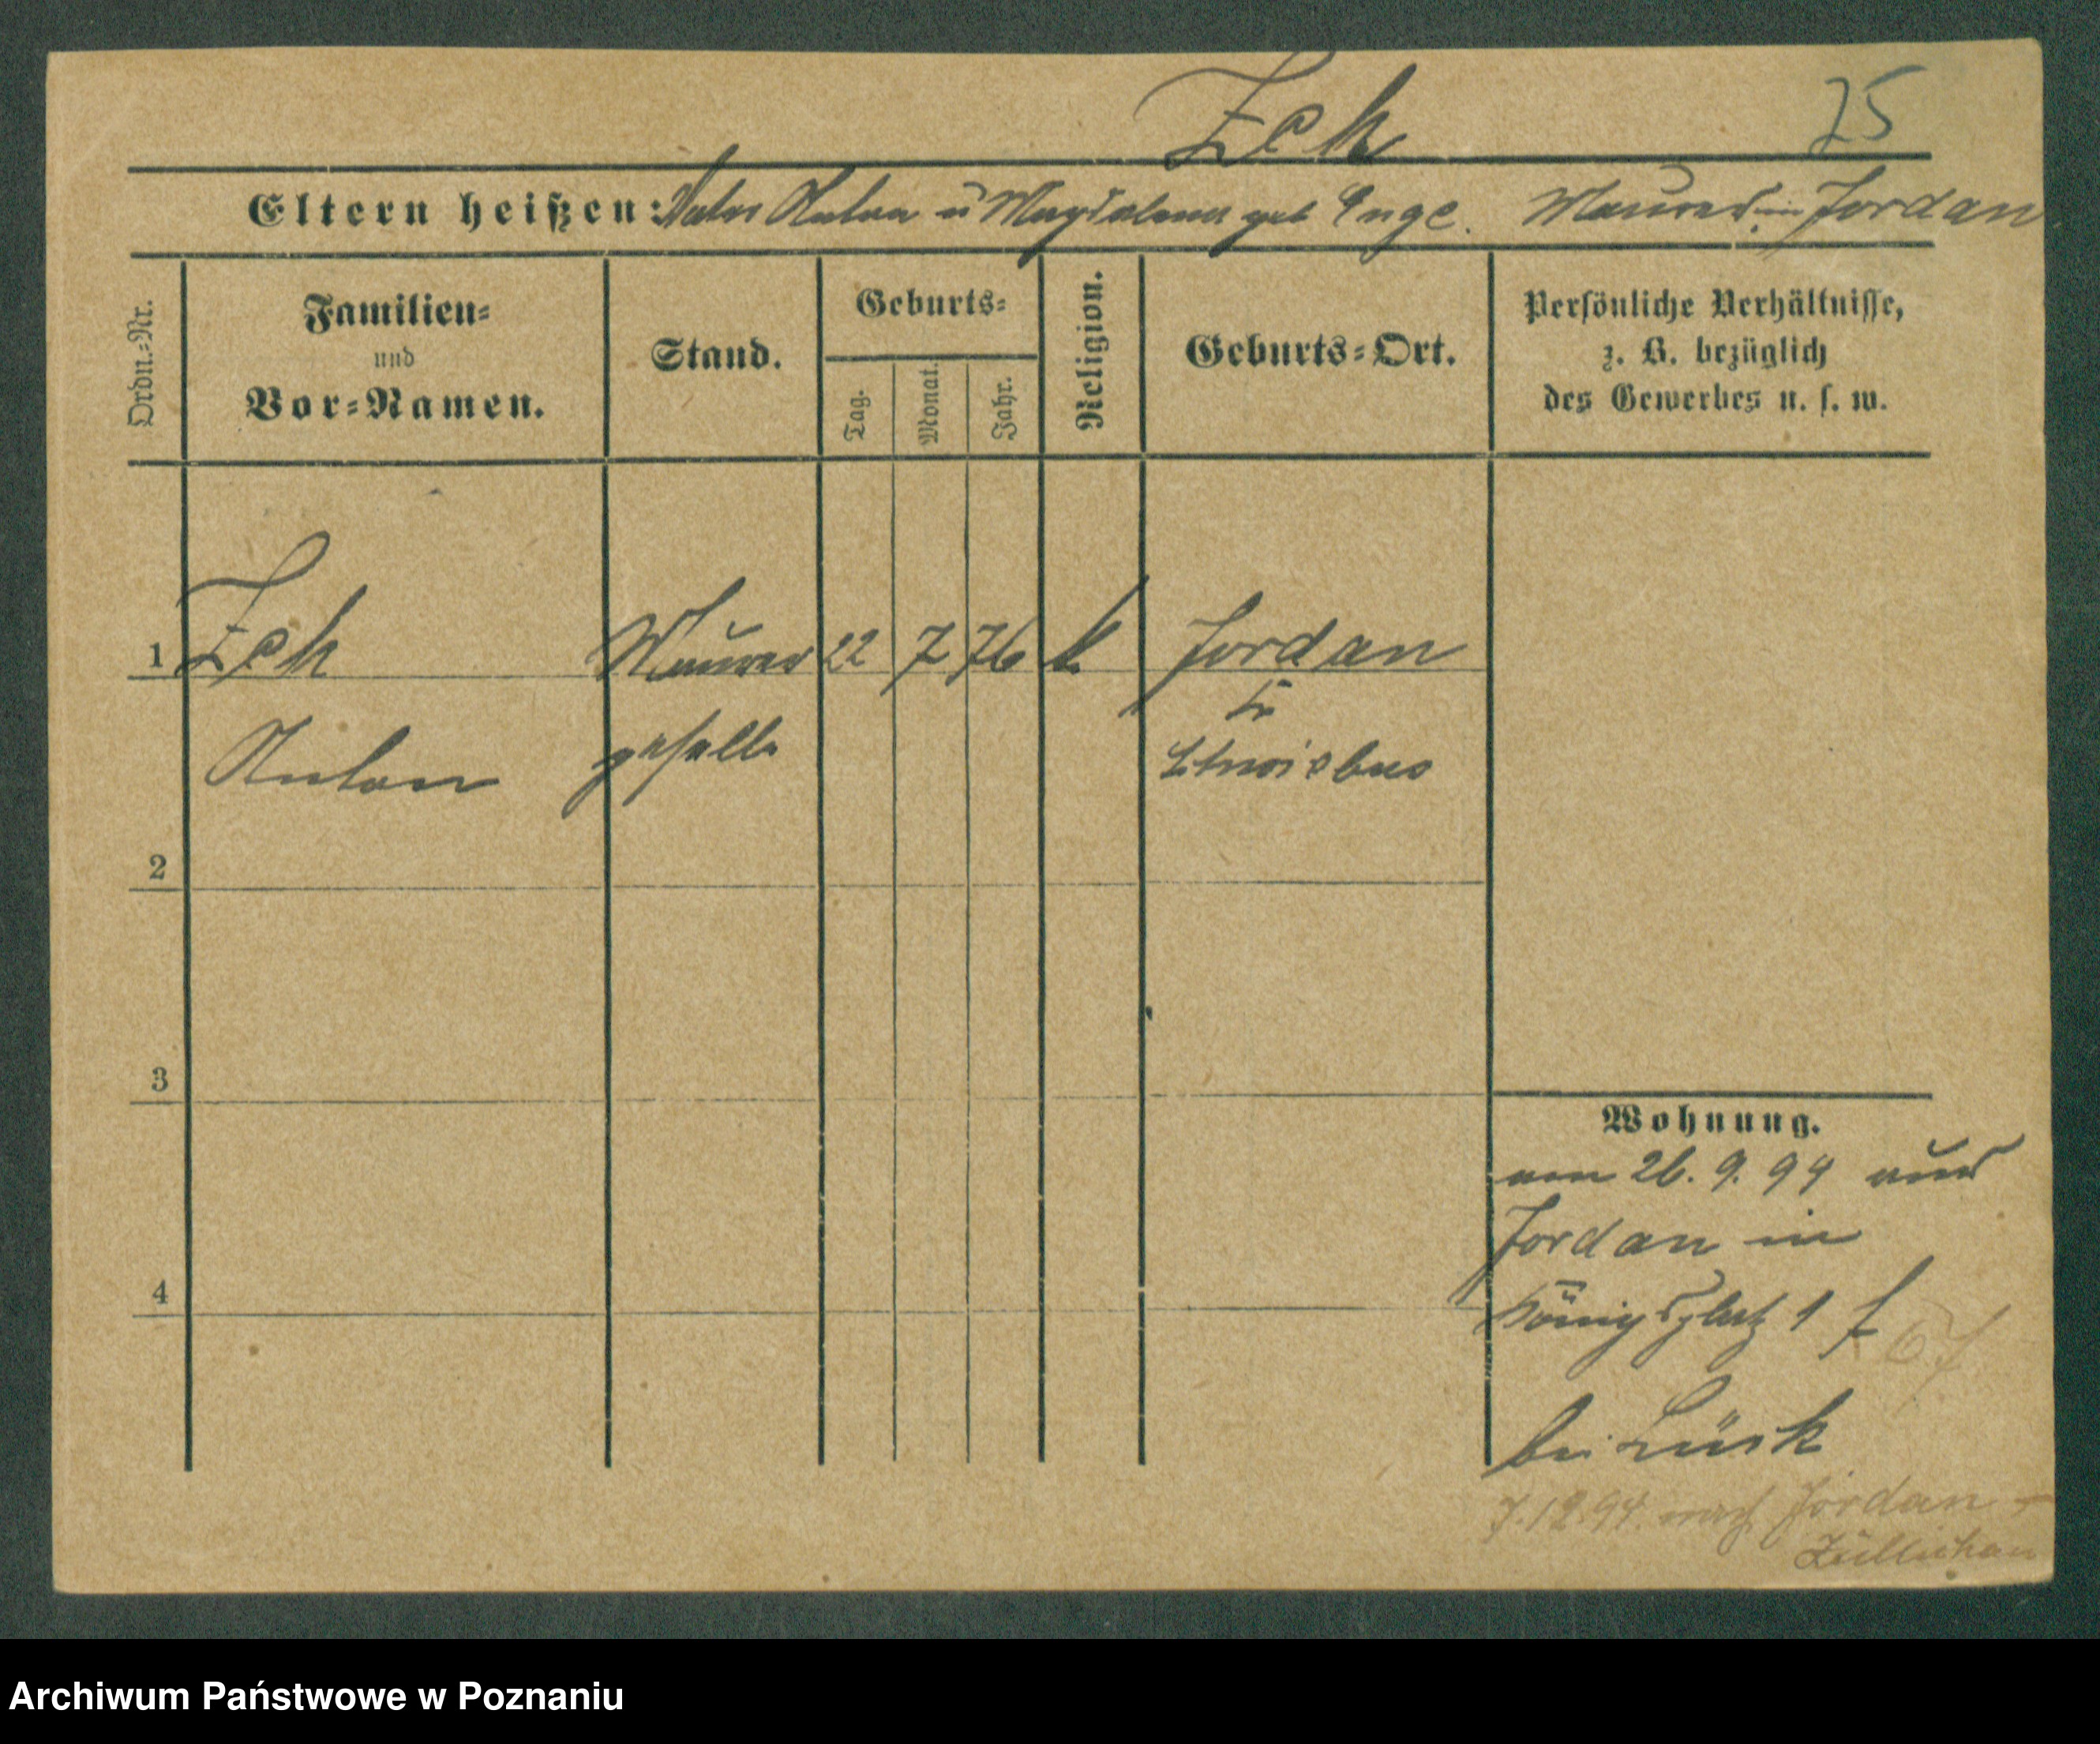 Zeh
75
Eltern heißen: Vater Anton u Magdalena geb Enge. Maurer in Jordan
Ordn.=Nr.
Familien=
und
Vor=Namen.
Stand.
Geburts=
Tag.
Monat.
Jahr.
Religion.
Geburts=Ort.
Persönliche Verhältnisse,
z. B. bezüglich
des Gewerbes u. s. w.
1 Zeh Maurer 22 7 76 k Jordan
Kr
Anton geselle Schwiebus
2
3
4
Wohnung.
am 26. 9. 94 aus
Jordan in
Königsplatz 1
67
bei
7.12.94. nach Jordan -
Züllichau
Archiwum Państwowe w Poznaniu